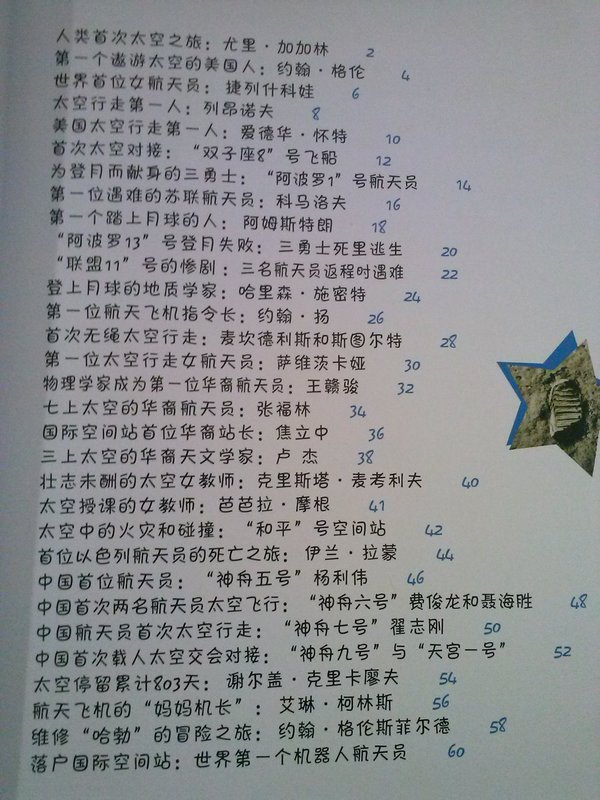 人类首次太空之旅：尤里·加加林 2
第一个遨游太空的美国人：约翰·格伦 4
世界首位女航天员：捷列什科娃 6
太空行走第一人：列昂诺夫 8
美国太空行走第一人：爱德华·怀特 10
首次太空对接：“双子座8”号飞船 12
为登月而献身的三勇士：“阿波罗1”号航天员 14
第一位遇难的苏联航天员：科马洛夫 16
第一个踏上月球的人：阿姆斯特朗 18
“阿波罗13”号登月失败：三勇士死里逃生 20
“联盟11”号的惨剧：三名航天员返程时遇难 22
登上月球的地质学家：哈里森·施密特 24
第一位航天飞机指令长：约翰·扬 26
首次无绳太空行走：麦坎德利斯和斯图尔特 28
第一位太空行走女航天员：萨维茨卡娅 30
物理学家成为第一位华裔航天员：王赣骏 32
七上太空的华裔航天员：张福林 34
国际空间站首位华裔站长：焦立中 36
三上太空的华裔天文学家：卢 杰 38
壮志未酬的太空女教师：克里斯塔·麦考利夫 40
太空授课的女教师：芭芭拉·摩根 41
太空中的火灾和碰撞：“和平”号空间站 42
首位以色列航天员的死亡之旅：伊兰·拉蒙 44
中国首位航天员：“神舟五号”杨利伟 46
中国首次两名航天员太空飞行：“神舟六号”费俊龙和聂海胜 48
中国航天员首次太空行走：“神舟七号”翟志刚 50
中国首次载人太空交会对接：“神舟九号”与“天宫一号” 52
太空停留累计803天：谢尔盖·克里卡廖夫 54
航天飞机的“妈妈机长”：艾琳·柯林斯 56
维修“哈勃”的冒险之旅：约翰·格伦斯菲尔德 58
落户国际空间站：世界第一个机器人航天员 60